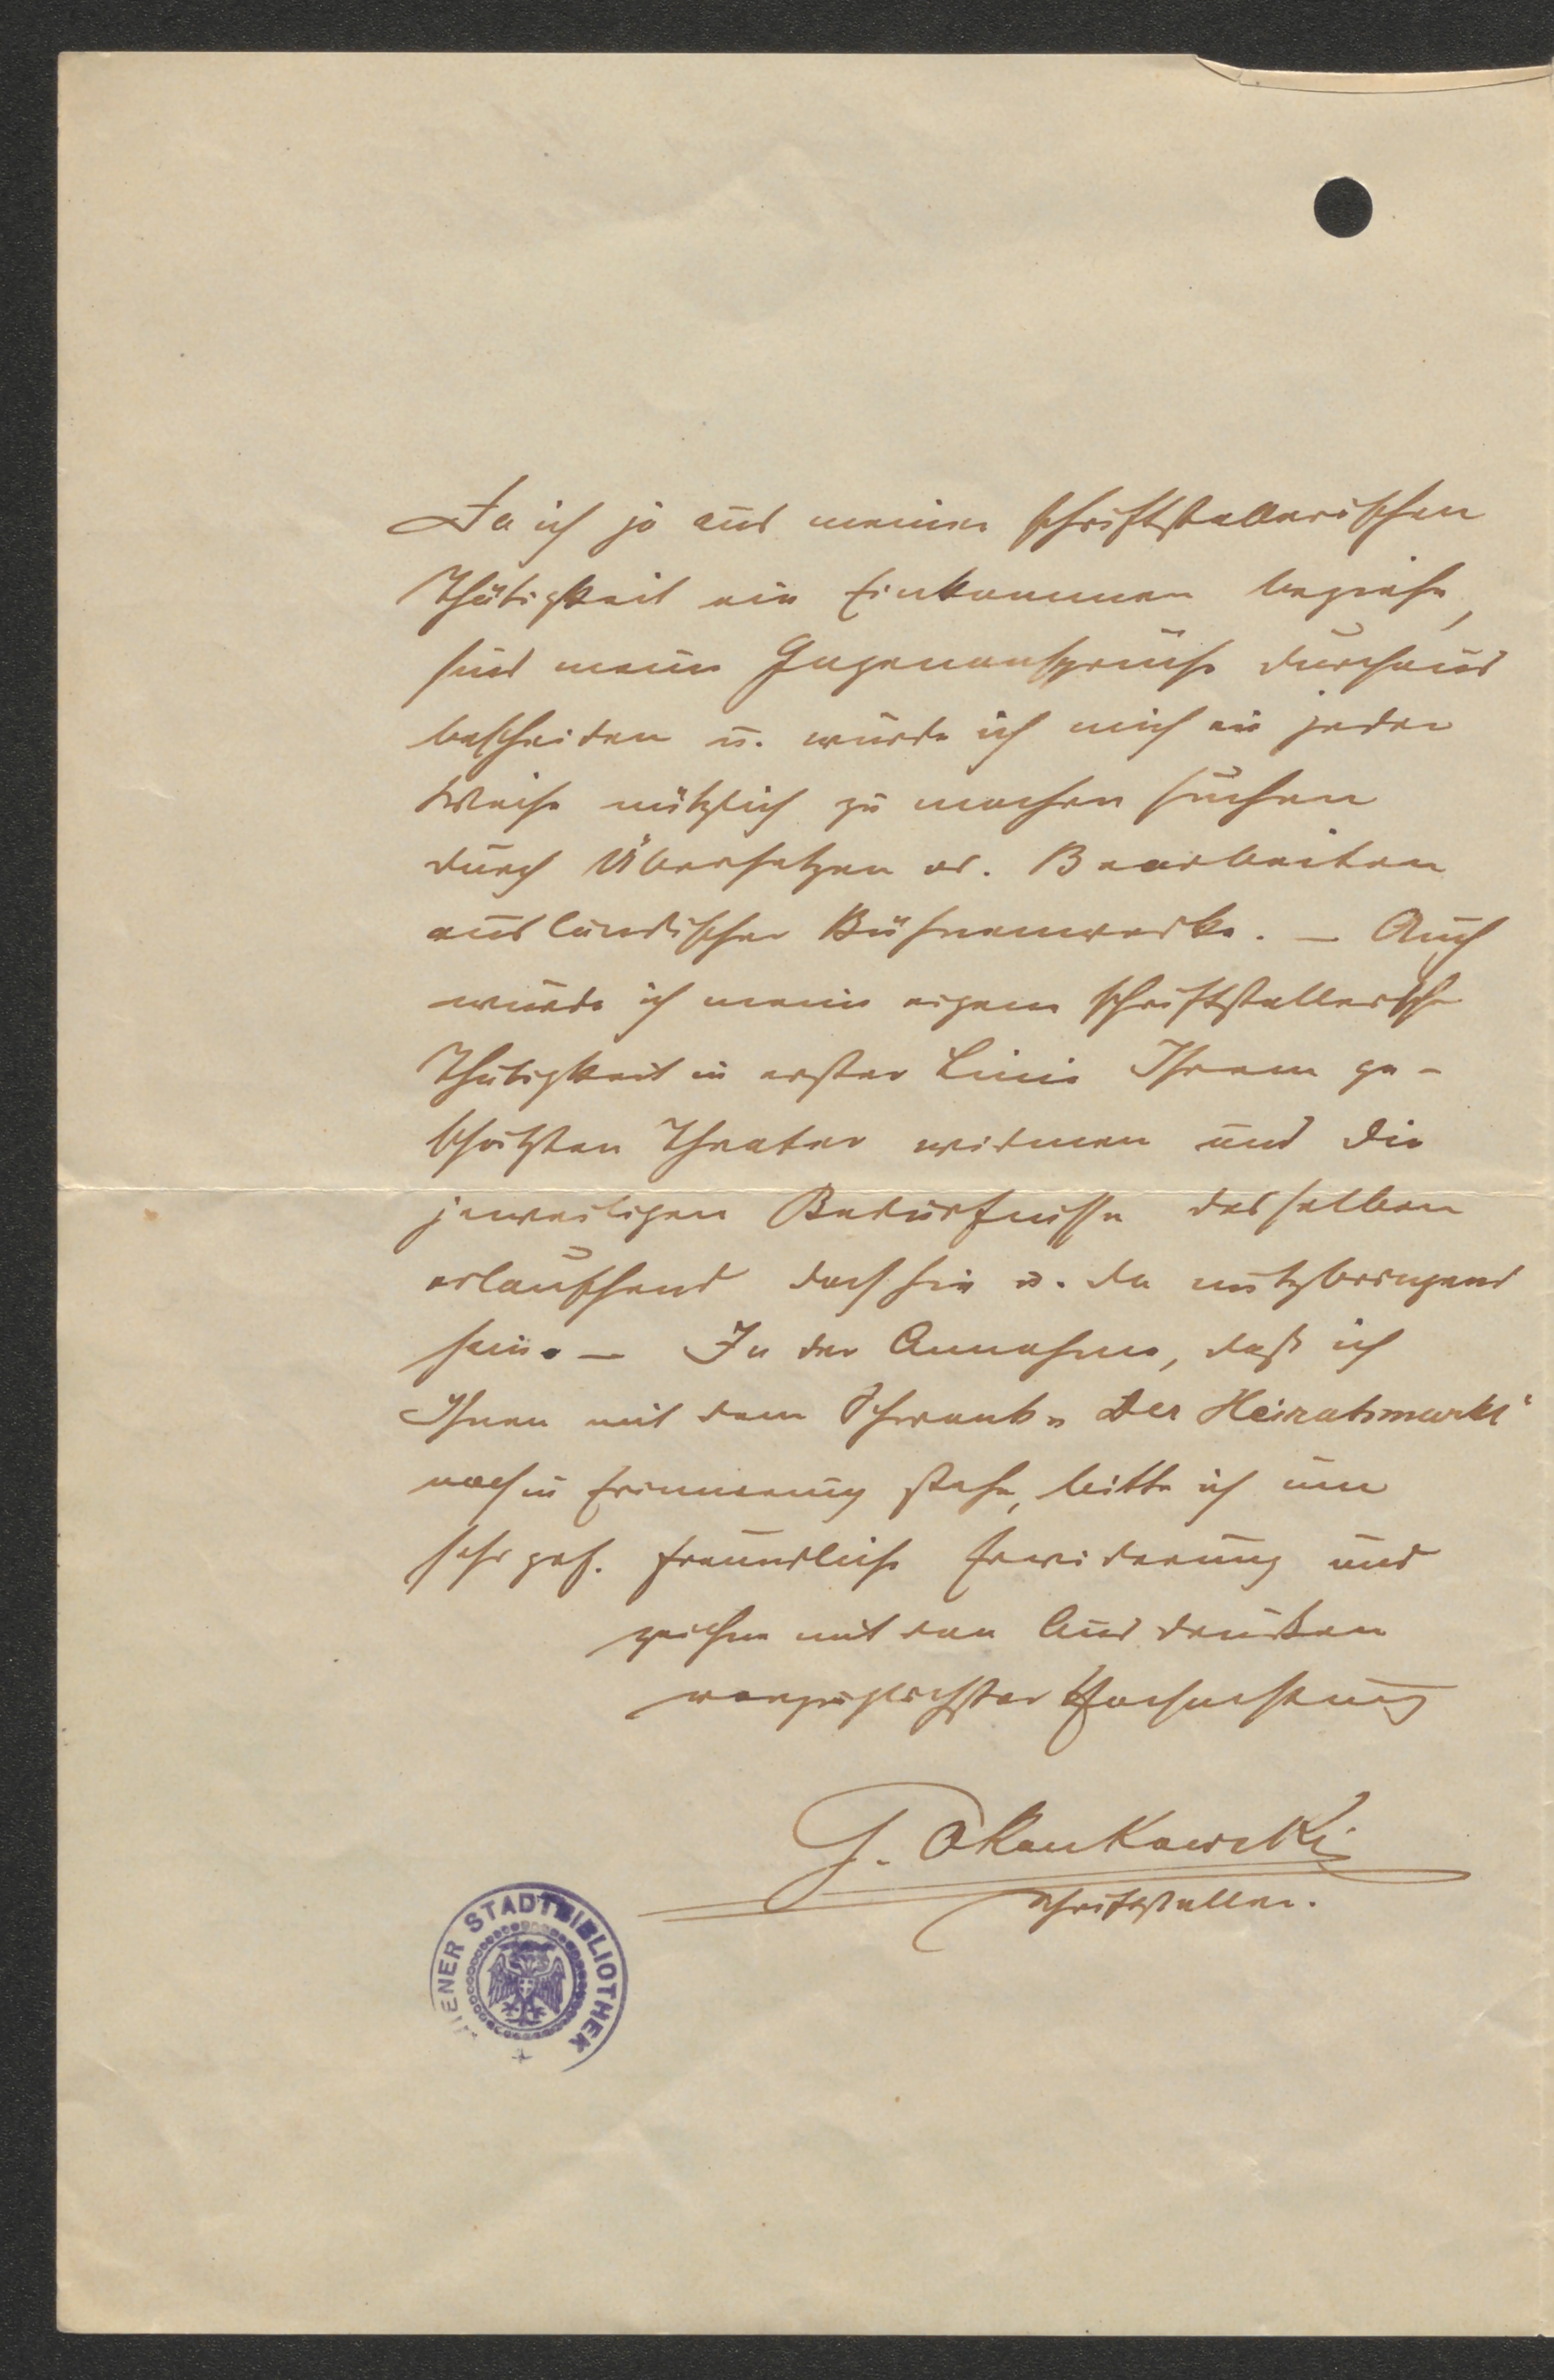 Da ich ja aus meiner schriftstellerischen
Thätigkeit ein Einkommen beziehe,
sind meine Gagenansprüche durchaus
bescheiden u. würde ich mich in jeder
Weise nützlich zu machen suchen
durch Übersetzen od. Bearbeiten
ausländischer Bühnenwerke. — Auch
würde ich meine eigene schriftstellerische
Thätigkeit in erster Linie Ihrem ge-
schätzten Theater widmen und die
jeweiligen Bedürfnisse desselben
erlauschend doch hie u. da nutzbringend
sein. — In der Annahme, daß ich
Ihnen mit dem Schwank „Der Heiratsmarkt“
noch in Erinnerung stehe, bitte ich um
sehr gef. freundliche Erwiderung und
zeichne mit den Ausdrücken
vorzüglichster Hochachtung
G. Okonkowski
Schriftsteller.
WIENER STADTBIBLIOTHEK